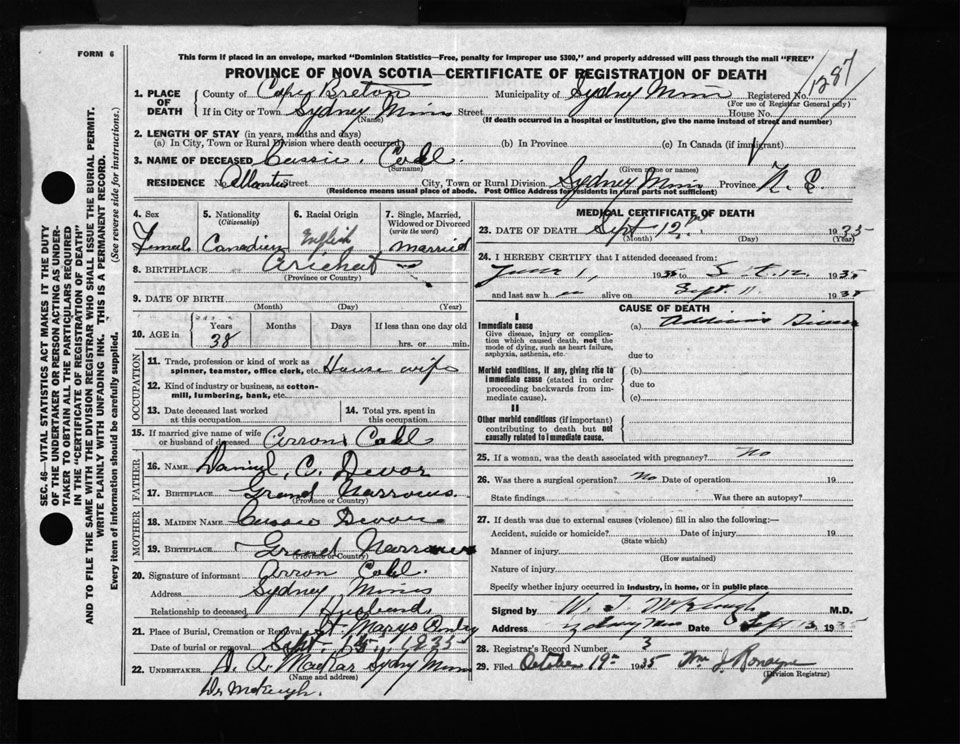 FORM 6
This form if placed in an envelope, marked "Dominion Statistics—Free, penalty for improper use $300," and properly addressed will pass through the mail "FREE"
PROVINCE OF NOVA SCOTIA—CERTIFICATE OF REGISTRATION OF DEATH
1287
1. PLACE OF DEATH
County of Cape Breton Municipality of Sydney Mines Registered No.
(For use of Registrar General only)
If in City or Town Sydney Mines Street House No.
(Name) (If death occurred in a hospital or institution, give the name instead of street and number)
2. LENGTH OF STAY (in years, months and days)
(a) In City, Town or Rural Division where death occurred (b) In Province (c) In Canada (if immigrant)
3. NAME OF DECEASED Cassie
(Surname) (Given name or names)
RESIDENCE No. Atlantic Street City, Town or Rural Division Sydney Mines Province N. S.
(Residence means usual place of abode. Post Office Address for residents in rural parts not sufficient)
4. Sex Female
5. Nationality (Citizenship) Canadian
6. Racial Origin English
7. Single, Married, Widowed or Divorced (write the word) Married
8. BIRTHPLACE Arichat
(Province or Country)
9. DATE OF BIRTH
(Month) (Day) (Year)
10. AGE in Years Months Days If less than one day
38 hrs. or min.
OCCUPATION
11. Trade, profession or kind of work as spinner, teamster, office clerk, etc. House wife
12. Kind of industry or business, as cotton-mill, lumbering, bank, etc.
13. Date deceased last worked at this occupation
14. Total yrs. spent in this occupation
15. If married give name of wife or husband of deceased Arron
FATHER
16. NAME Daniel C. Devor
17. BIRTHPLACE Grand Narrows
(Province or Country)
MOTHER
18. MAIDEN NAME Cassie
19. BIRTHPLACE Grand Narrows
(Province or Country)
20. Signature of informant Arron
Address Sydney Mines
Relationship to deceased Husband
21. Place of Burial, Cremation or Removal St. Marys
Date of burial or removal Sept. 15, 1935
22. UNDERTAKER D. A. Sydney Mines
(Name and address)
Dr McKeugh.
MEDICAL CERTIFICATE OF DEATH
23. DATE OF DEATH Sept 12th 1935
(Month) (Day) (Year)
24. I HEREBY CERTIFY that I attended deceased from:
June 1, 1935 to Sept. 12 1935
and last saw her alive on Sept. 11 1935
CAUSE OF DEATH
I
Immediate cause
Give disease, injury or complication which caused death, not the mode of dying, such as heart failure, asphyxia, asthenia, etc.
(a) Addisons Disease
due to
Morbid conditions, if any, giving rise to immediate cause (stated in order proceeding backwards from immediate cause).
(b)
due to
(c)
II
Other morbid conditions (if important) contributing to death but not causally related to immediate cause.
25. If a woman, was the death associated with pregnancy? No
26. Was there a surgical operation? No Date of operation 19
State findings Was there an autopsy?
27. If death was due to external causes (violence) fill in also the following:—
Accident, suicide or homicide? Date of injury 19
(State which)
Manner of injury
(How sustained)
Nature of injury
Specify whether injury occurred in industry, in home, or in public place
Signed by M.D.
Address Sydney Mines Date Sept 13, 1935
28. Registrar's Record Number 3
29. Filed October 19th 1935 Wm J. Ronayne
(Division Registrar)
SEC. 46—VITAL STATISTICS ACT MAKES IT THE DUTY
OF THE UNDERTAKER OR PERSON ACTING AS UNDER-
TAKER TO OBTAIN ALL THE PARTICULARS REQUIRED
IN THE "CERTIFICATE OF REGISTRATION OF DEATH"
AND TO FILE THE SAME WITH THE DIVISION REGISTRAR WHO SHALL ISSUE THE BURIAL PERMIT.
WRITE PLAINLY WITH UNFADING INK. THIS IS A PERMANENT RECORD.
Every item of information should be carefully supplied. (See reverse side for instructions.)